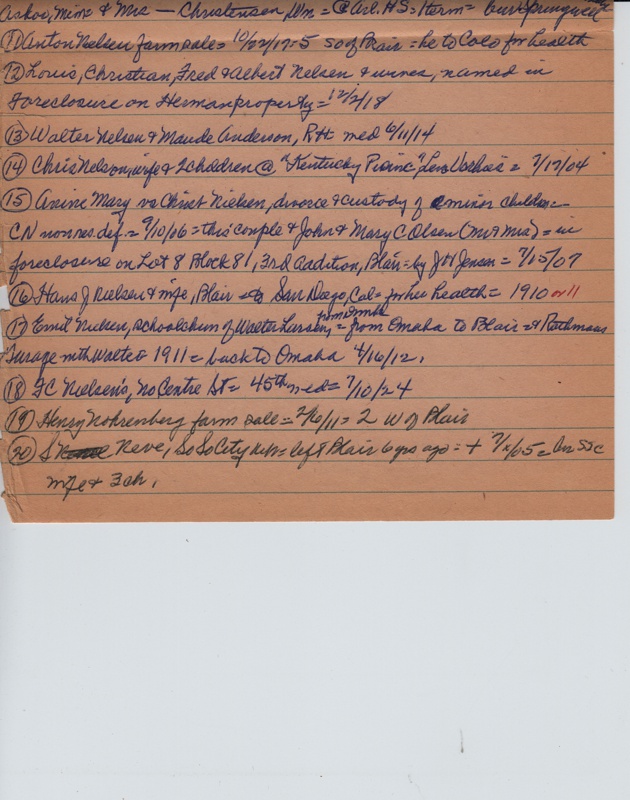 Askov, Minn & Mrs — Christensen, Wm = @ Arl. H S = Herm = buri Springwell
11 Anton Nielsen farm sale = 10/22/17 = 5 so of Blair = he to Colo for health
12 Louis, Christian, Fred & Albert Nelsen & wives, named in
foreclosure on Herman property = 12/2/18
13 Walter Nelsen & Maude Anderson, R H med 6/11/14
14 Chris Nelson, wife & 2 children @ "Kentucky Picnic", = 7/17/04
15 Anine Mary vs Christ Nielsen, divorce & custody of minor children =
CN nonres def. = 9/10/06 = this couple & John & Mary C Olsen (Mr & Mrs) = in
foreclosure on Lot 8 Block 81, 3rd addition, Blair = by J H Jensen = 7/15/07
16 Hans J Nielsen & wife, Blair to San Diego, Cal = for her health = 1910 or 11
17 Emil Nielsen, schoolchum of Walter Larsen, = from Omaha to Blair = & Rathmann
Garage with Walter 1911 = back to Omaha 4/16/12.
18 FC Nielsen's, No Centre St = 45th med = 7/10/24
19 Henry Nohrenberg farm sale = 2/16/11 = 2 W of Blair
20 S Neve, So So City Neb = left Blair 6 yrs ago = + 7/x/05 = bur SSC
wife & 3 ch.